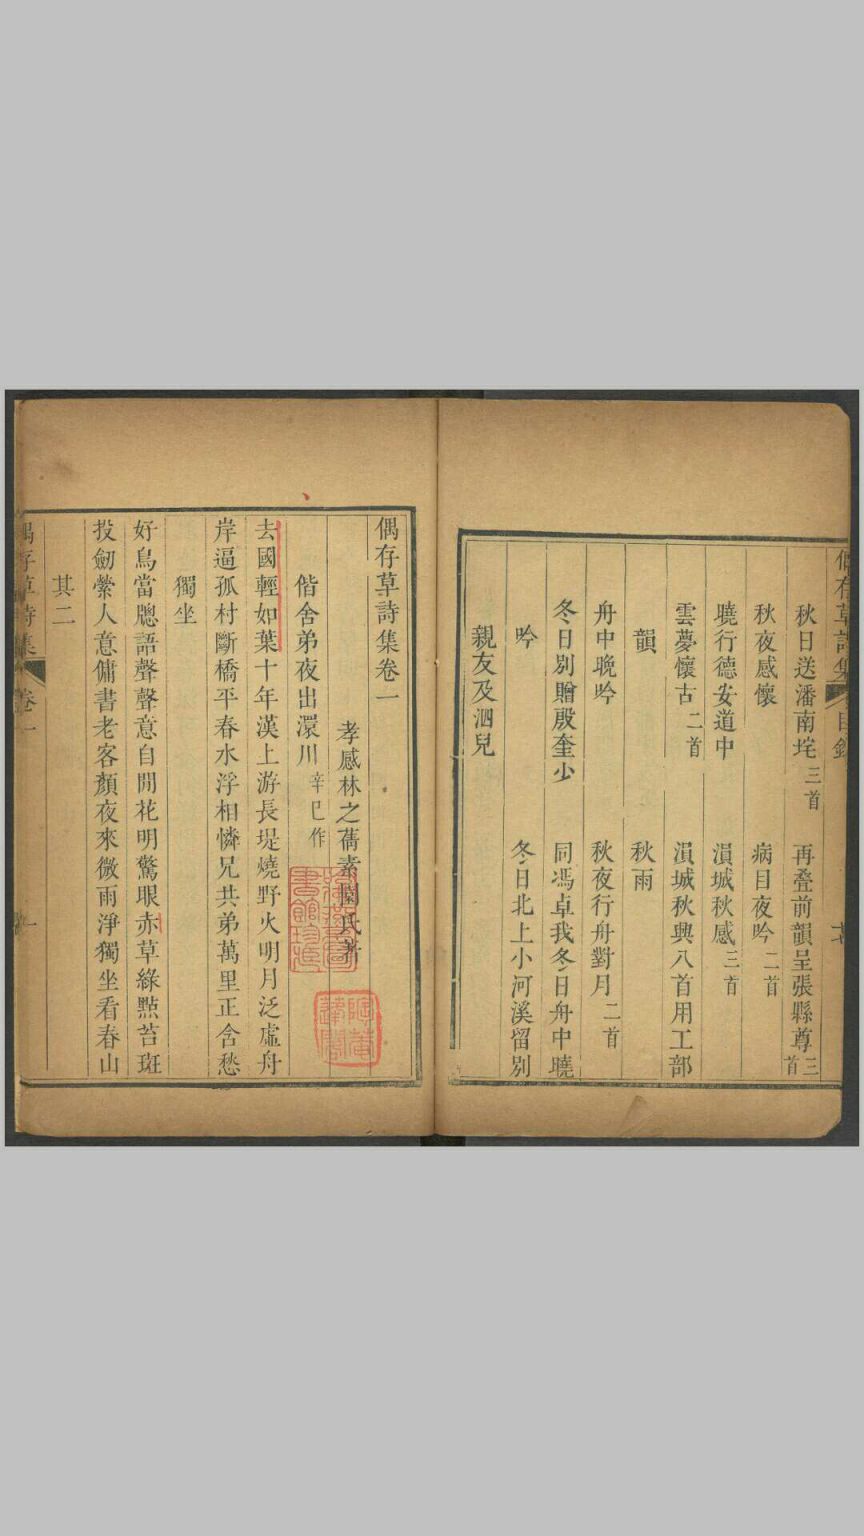 秋日送潘南垞三首　再叠前韻呈張縣尊三首
秋夜感懷　病目夜吟二首
曉行德安道中　溳城秋感三首
雲夢懷古二首　溳城秋興八首用工部
韻　秋雨
舟中晚吟　秋夜行舟對月二首
冬日別贈殷奎少　同馮卓我冬日舟中曉
吟　冬日北上小河溪留別
親友及泗兒
偶存草詩集卷一
孝感林之蒨素園氏著
偕舍弟夜出澴川辛巳作
去國輕如葉十年漢上游長堤燒野火明月泛虛舟
岸逼孤村斷橋平春水浮相憐兄共弟萬里正含愁
獨坐
好鳥當牕語聲聲意自閒花明驚眼赤草綠點苔斑
投劒縈人意傭書老客顏夜來微雨淨獨坐看春山
其二
偶存草詩集　卷一　一